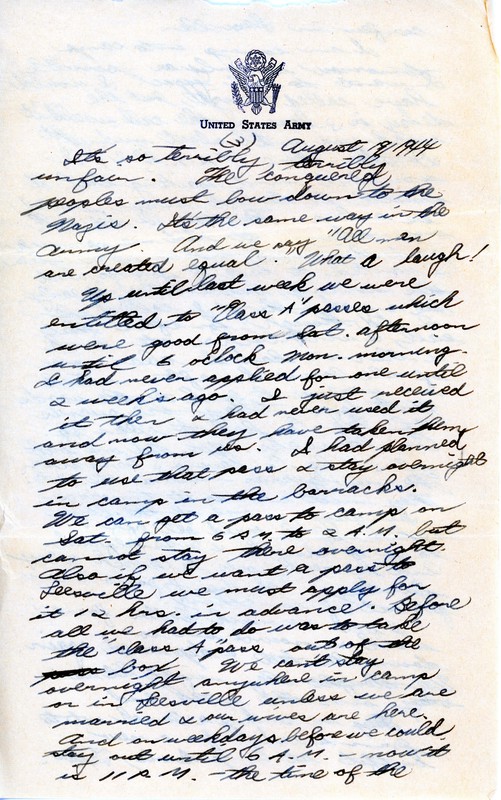 United States Army
(3) August 19, 1944
It's so terribly, terribly
unfair. The conquered
peoples must bow down to the
Nazis. It's the same way in the
army. And we say "All men
are created equal." What a laugh!
Up until last week we were
entitled to "Class A" passes which
were good from Sat. afternoon
until 6 oclock Mon. morning.
I had never applied for one until
2 week's ago. I just received
it then & had never used it
and now they have taken them
away from us. I had planned
to use that pass & stay overnight
in camp in the barracks.
We can get a pass to camp on
Sat. from 6 P.M. to 2 A.M. but
cannot stay there overnight.
Also if we want a pass to
Leesville we must apply for
it 12 hrs. in advance. Before
all we had to do was to take
the class A pass out of the
box. We can't stay
overnight anywhere in camp
or in Leesville unless we are
married & our wives are here.
And on weekdays before we could
stay out until 6 A.M. - now it
is 11 P.M. - the time of the